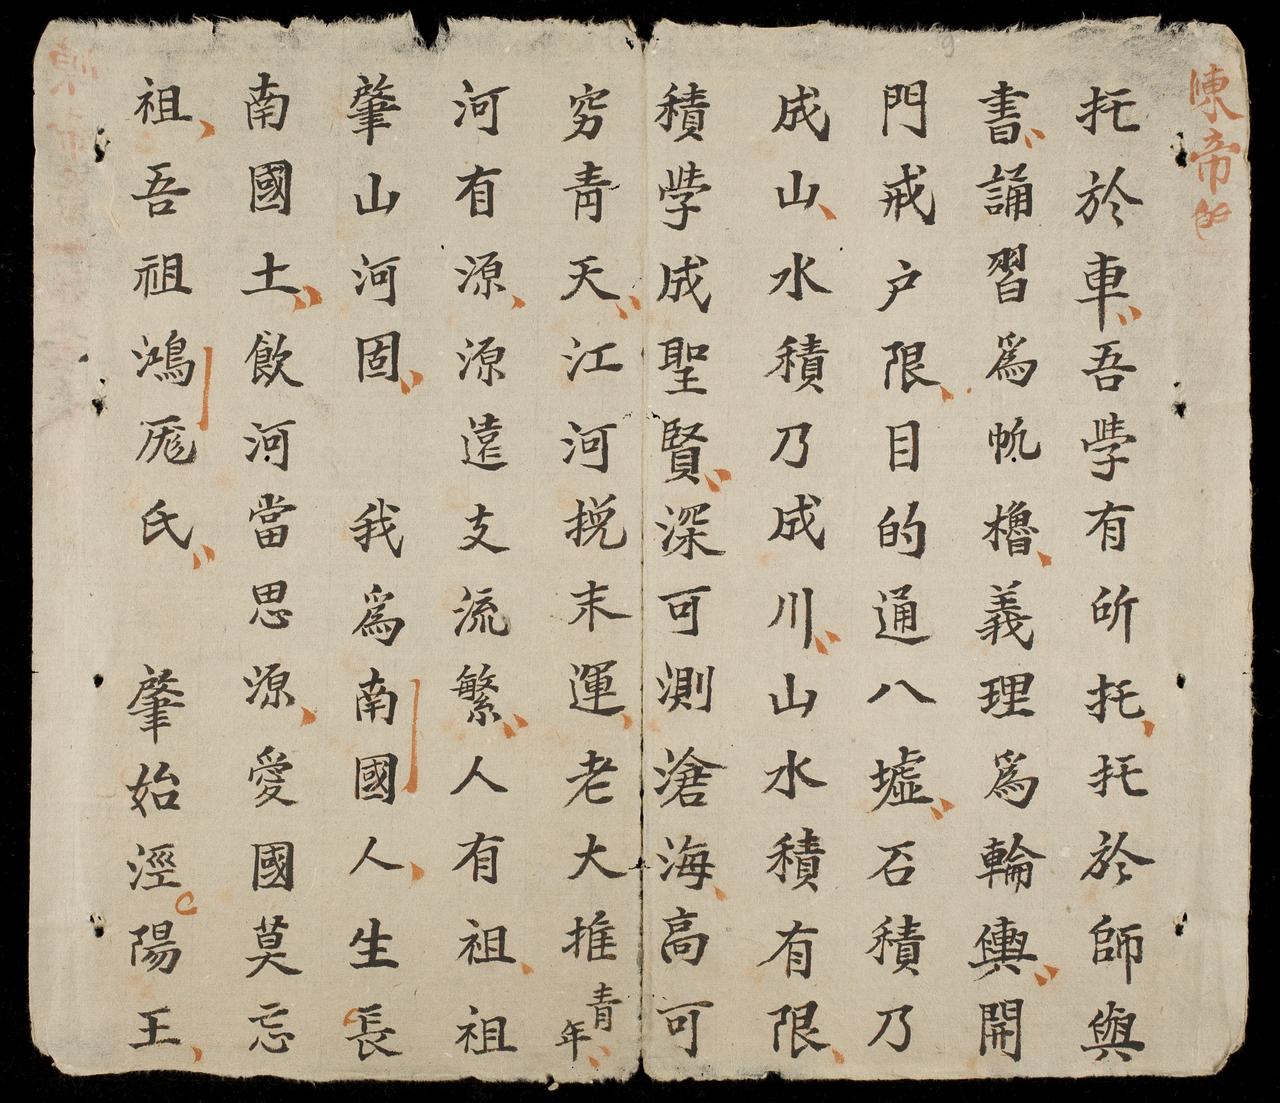 陳帝
托於車吾學有所托托於師與
書誦習爲帆櫓義理爲輪輿開
門戒户限目的通八墟石積乃
成山水積乃成川山水積有限
積學成聖賢深可測滄海高可
窮青天江河挽末運老大推青年
河有源源遠支流繁人有祖祖
肇山河固 我爲南國人生長
南國土飲河當思源愛國莫忘
祖吾祖鴻厖氏 肇始涇陽王